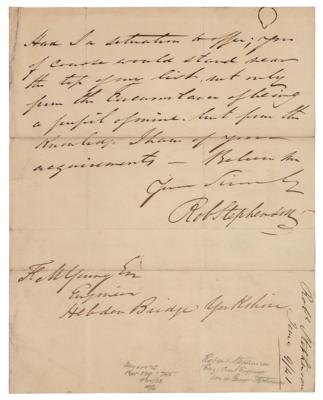 Had I a situation to offer, you
of course would stand near
the top of my list, not only
from the circumstance of being
a pupil of mine, but from the
knowledge I have of your
acquirements — Believe me
Yours Sincerely
Rob Stephenson
Young Esq
Engineer
Hebden Bridge Yorkshire
Robt Stephenson
June 9/41
Robert Stephenson
Engineer